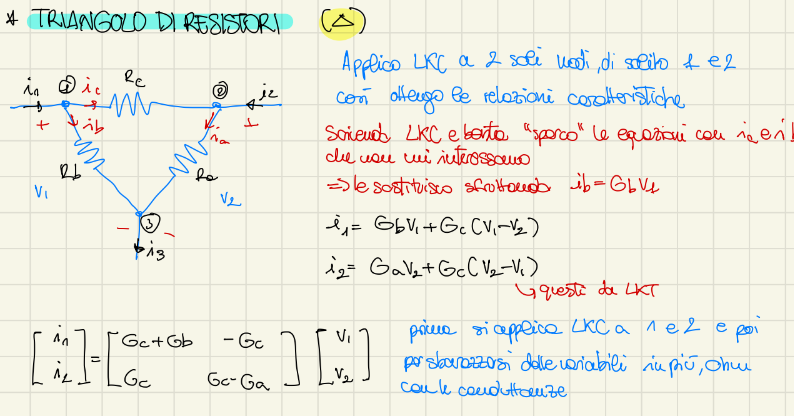 * TRIANGOLO DI RESISTORI (△)
Applico LKC a 2 soli nodi, di solito 1 e 2
così ottengo le relazioni caratteristiche
scrivendo LKC e basta "sporco" le equazioni con ia e ib
che non mi interessano
⇒ le sostituisco sfruttando ib = GbV1
i1 = GbV1 + Gc (V1-V2)
i2 = GaV2 + Gc (V2-V1)
↳ questi da LKT
i1 1 ic Rc 2 i2
+ ib ia +
Rb Ra
V1 V2
- 3 -
i3
[i1 i2] = [Gc+Gb -Gc
Gc Gc-Ga] [V1 V2]
prima si applica LKC a 1 e 2 e poi
per sbarazzarsi delle variabili in più, Ohm
con le conduttanze